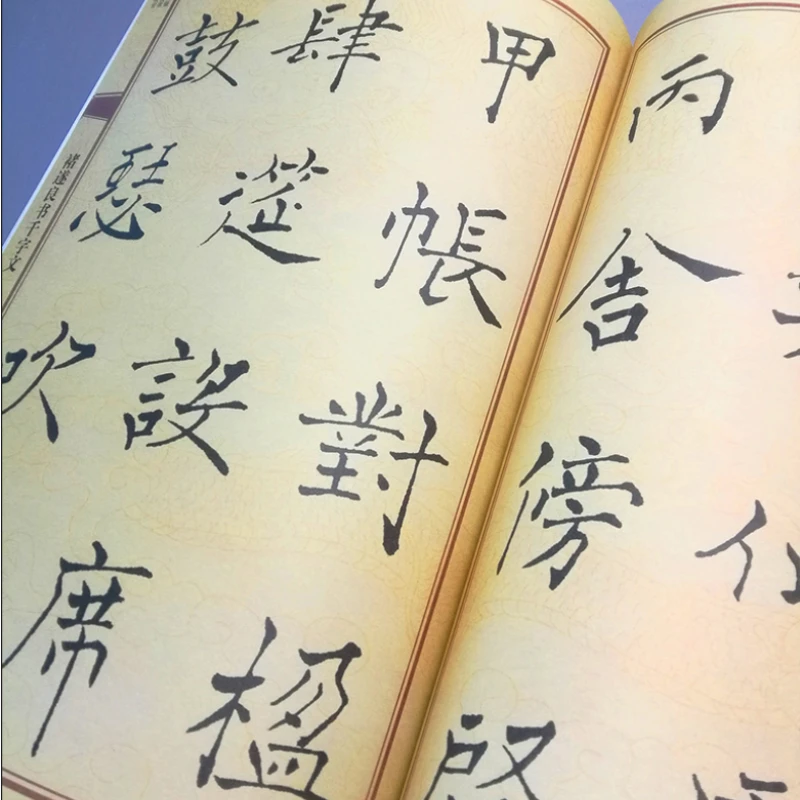 丙舍傍啓
甲帳對楹
肆筵設席
鼓瑟吹
褚遂良书千字文